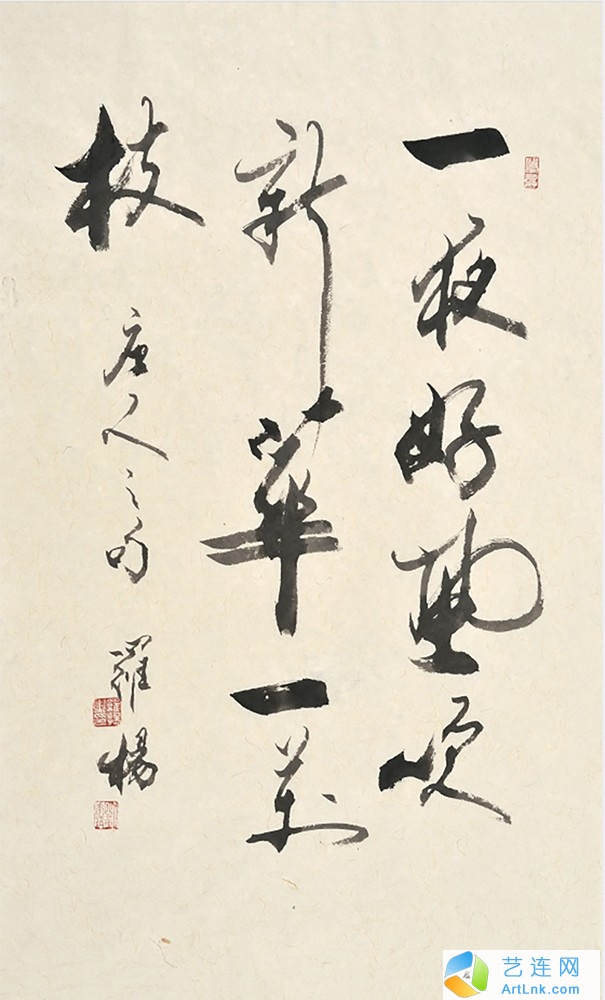 一夜好風吹
新華一萬
枝
唐人之句 羅楊
艺连网
ArtLnk.com